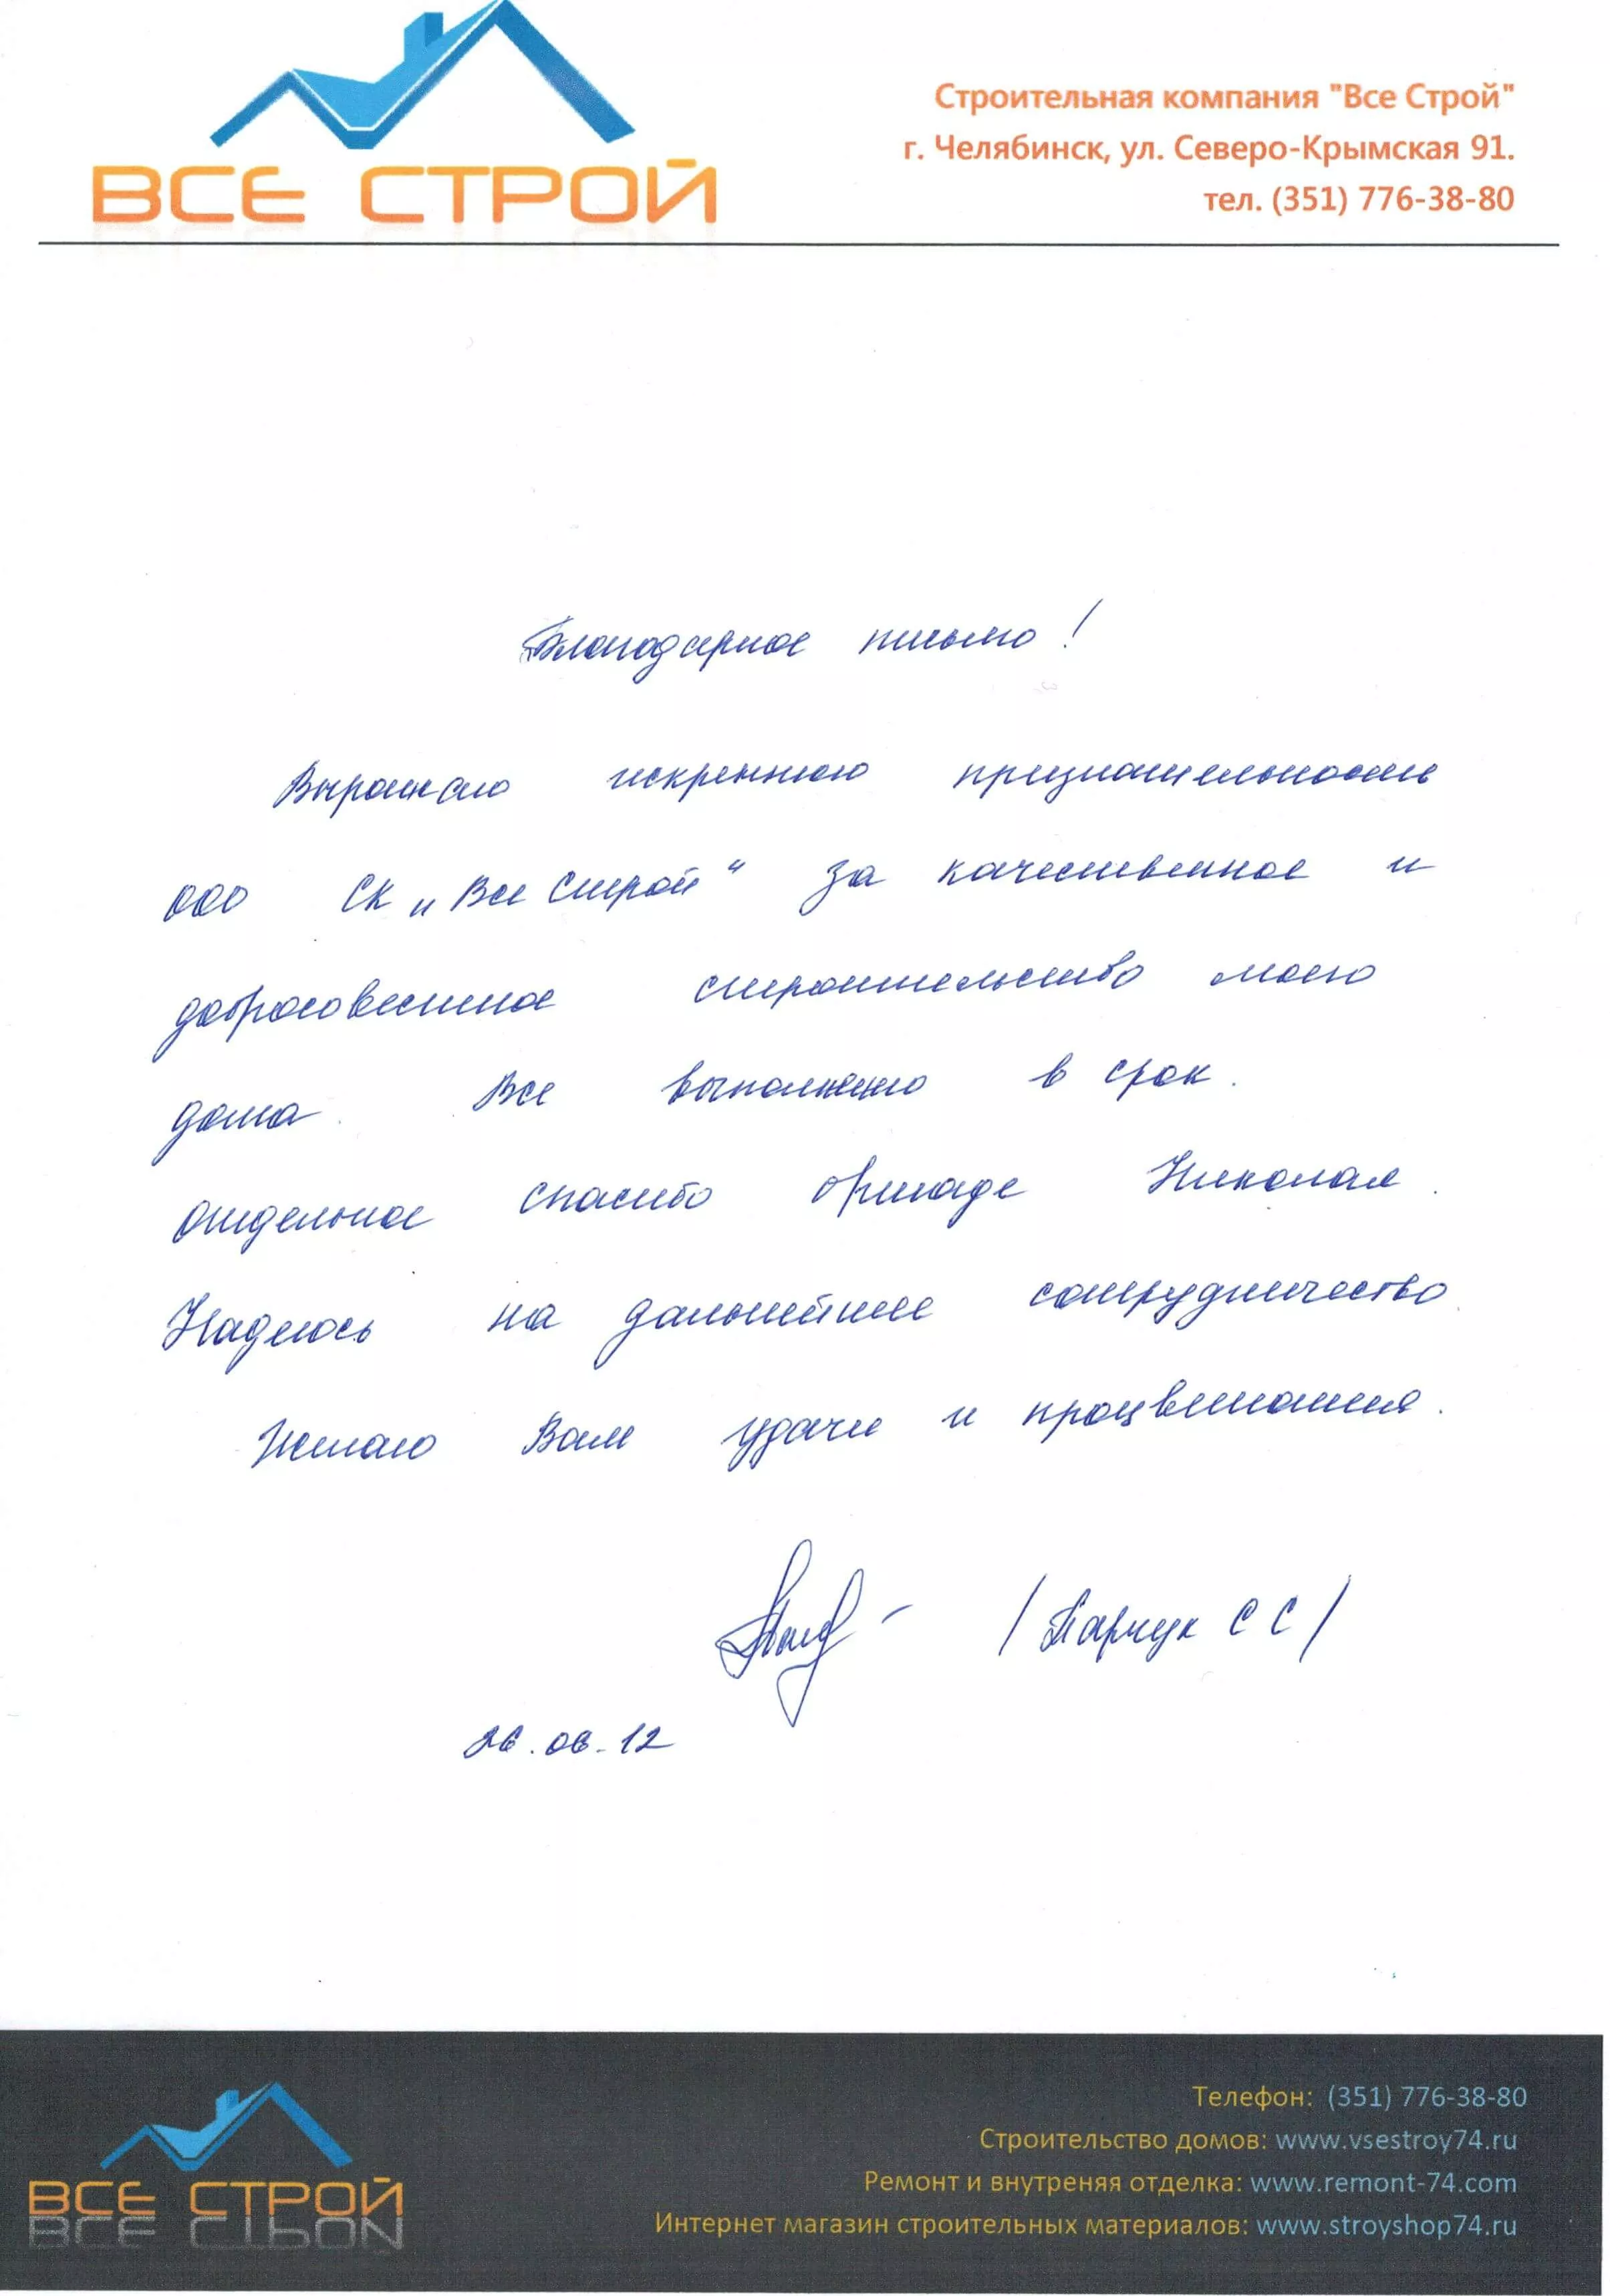 ВСЕ СТРОЙ
Строительная компания "Все Строй"
г. Челябинск, ул. Северо-Крымская 91.
тел. (351) 776-38-80
Благодарное письмо!
Выражаю искреннюю признательность
ООО СК „Все Строй“ за качественное и
добросовестное строительство моего
дома. Все выполнено в срок.
Отдельное спасибо бригаде Николая.
Надеюсь на дальнейшее сотрудничество.
Желаю Вам удачи и процветания.
/ Парчук С С /
26.06.12
Телефон: (351) 776-38-80
Строительство домов: www.vsestroy74.ru
Ремонт и внутреняя отделка: www.remont-74.com
Интернет магазин строительных материалов: www.stroyshop74.ru
ВСЕ СТРОЙ